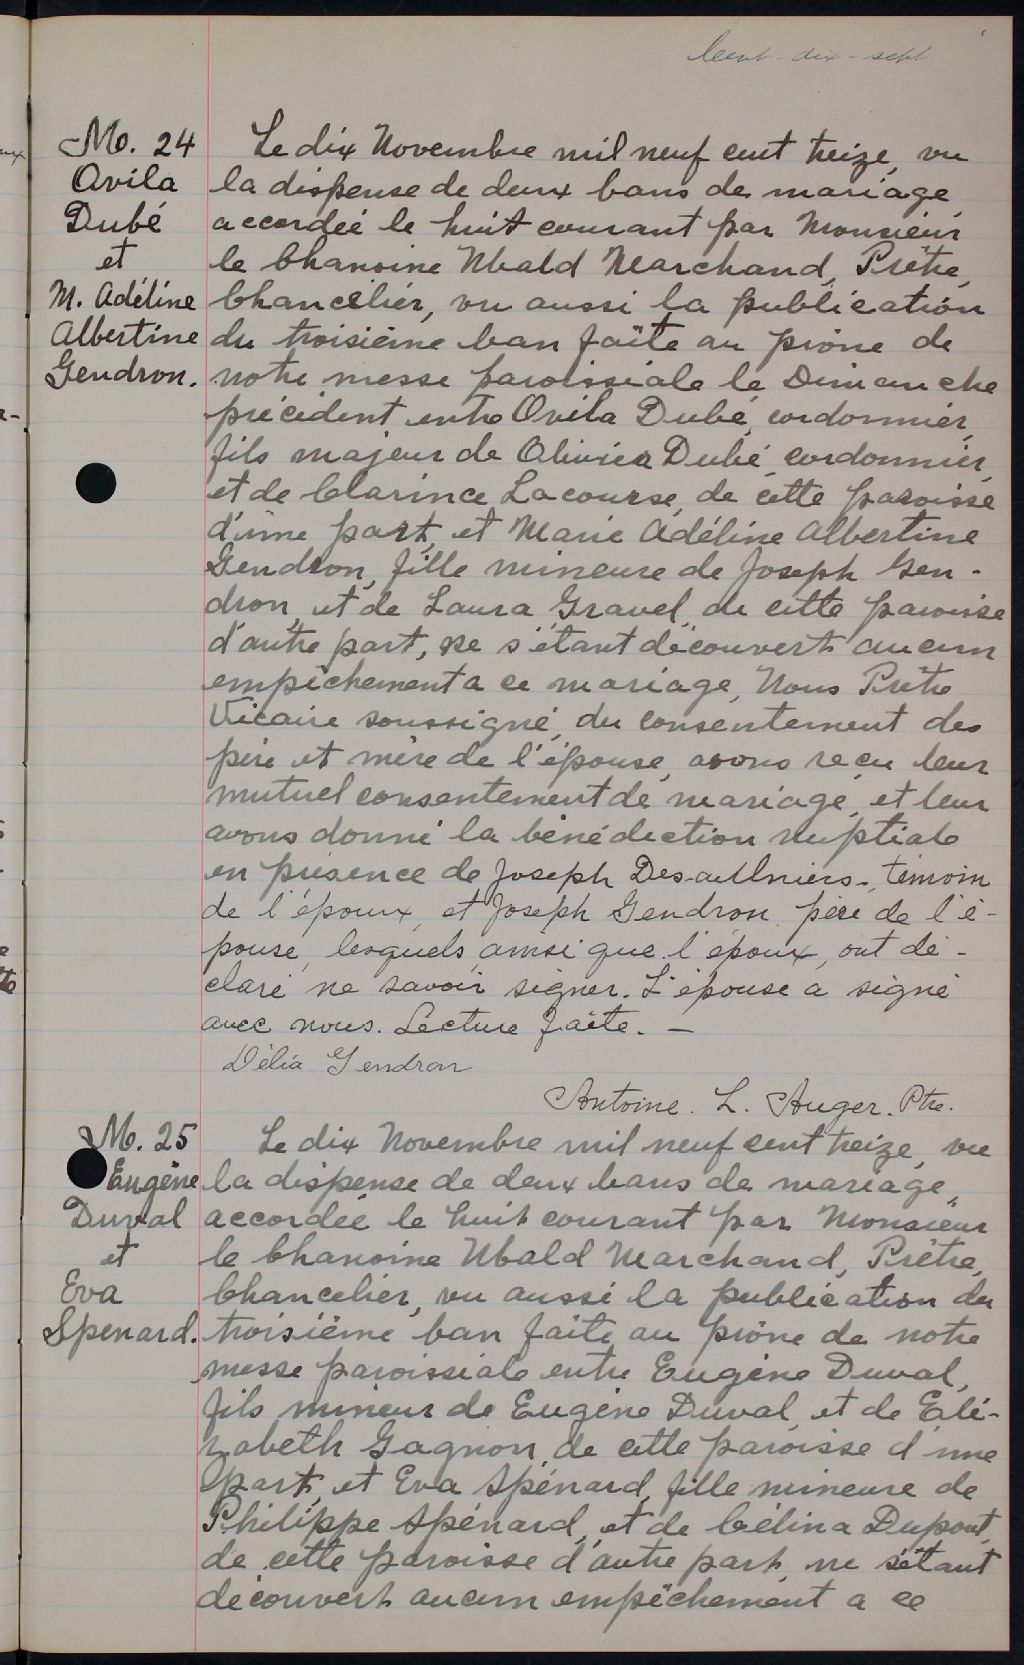 Cent-dix-sept
M. 24
Ovila
Dubé
et
M. Adéline
Albertine
Gendron.
Le dix Novembre mil neuf cent treize, vu
la dispense de deux bans de mariage,
accordée le huit courant par Monsieur
le Chanoine Ubald Marchand, Prêtre,
Chancelier, vu aussi la publication
du troisième ban faite au prône de
notre messe paroissiale le Dimanche
précédent entre Ovila Dubé, cordonnier,
fils majeur de Olivier Dubé, cordonnier,
et de Clarince Lacourse, de cette paroisse
d'une part, et Marie Adéline Albertine
Gendron, fille mineure de Joseph Gen-
dron, et de Laura Gravel, de cette paroisse
d'autre part, ne s'étant découvert aucun
empêchement a ce mariage, Nous Prêtre
Vicaire soussigné, du consentement des
père et mère de l'épouse, avons reçu leur
mutuel consentement de mariage, et leur
avons donné la bénédiction nuptiale
en présence de Joseph Desaulniers, témoin
de l'époux, et Joseph Gendron père de l'é-
pouse, lesquels, ainsi que l'époux, ont dé-
claré ne savoir signer. L'épouse a signé
avec nous. Lecture faite. —
Délia Gendron
Antoine. L. Auger. Ptre.
M. 25
Eugène
Duval
et
Eva
Spenard.
Le dix Novembre mil neuf cent treize, vu
la dispense de deux bans de mariage,
accordée le huit courant par Monsieur
le Chanoine Ubald Marchand, Prêtre,
Chancelier, vu aussi la publication du
troisième ban faite au prône de notre
messe paroissiale entre Eugène Duval,
fils mineur de Eugène Duval, et de Eli-
zabeth Gagnon, de cette paroisse d'une
part, et Eva Spénard, fille mineure de
Philippe Spénard, et de Célina Dupont,
de cette paroisse d'autre part, ne s'étant
découvert aucun empêchement a ce